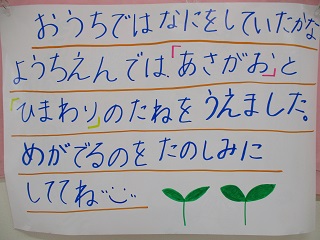 おうちではなにをしていたかな
ようちえんでは、「あさがお」と
「ひまわり」のたねをうえました。
めがでるのをたのしみに
しててね